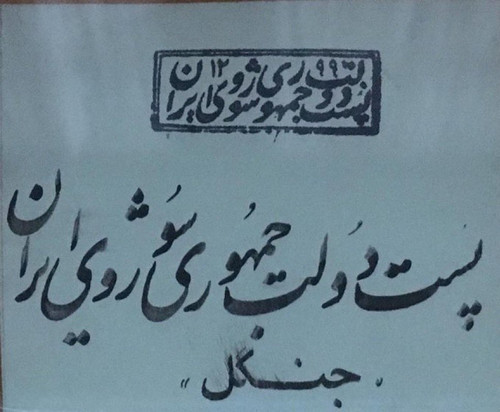 پست دولت جمهوری شوروی ایران
پست دولت جمهوری سوژوی ایران
"جنگل"